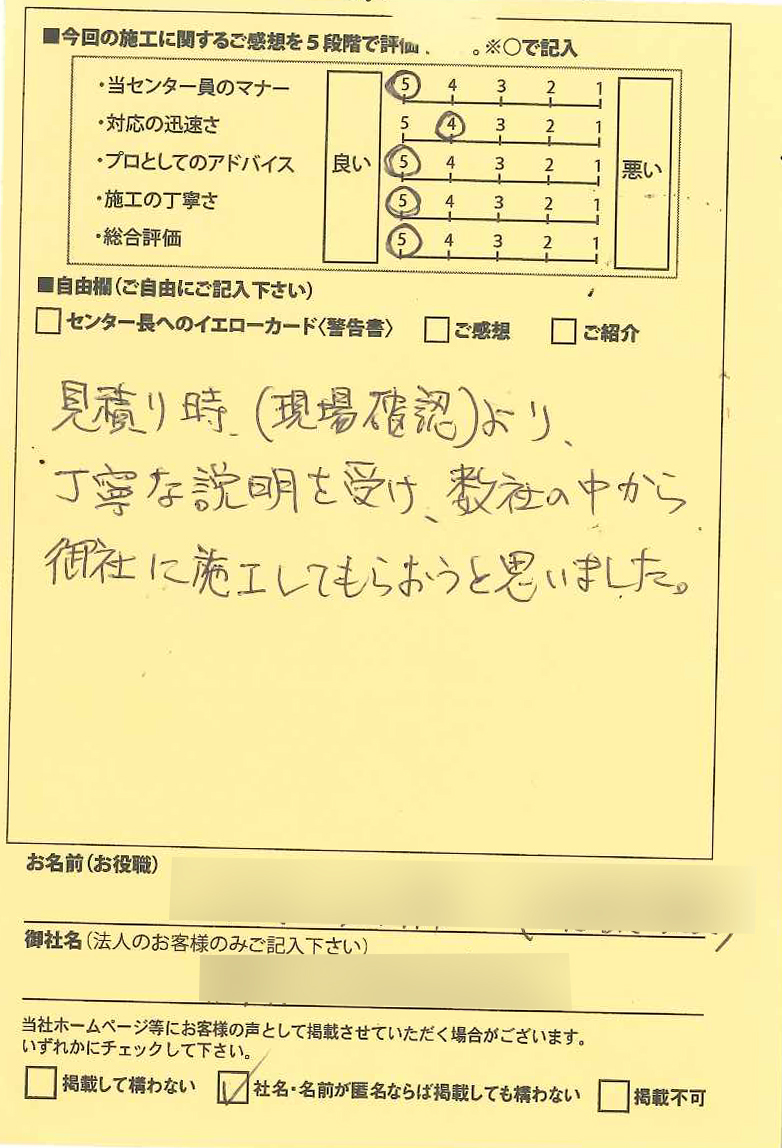 ■今回の施工に関するご感想を5段階で評価 。※○で記入
・当センター員のマナー 5 4 3 2 1
・対応の迅速さ 5 4 3 2 1
・プロとしてのアドバイス 良い 5 4 3 2 1 悪い
・施工の丁寧さ 5 4 3 2 1
・総合評価 5 4 3 2 1
■自由欄(ご自由にご記入下さい)
センター長へのイエローカード〈警告書〉 ご感想 ご紹介
見積り時、(現場確認)より、
丁寧な説明を受け、数社の中から
御社に施工してもらおうと思いました。
お名前(お役職)
御社名(法人のお客様のみご記入下さい)
当社ホームページ等にお客様の声として掲載させていただく場合がございます。
いずれかにチェックして下さい。
掲載して構わない 社名・名前が匿名ならば掲載しても構わない 掲載不可